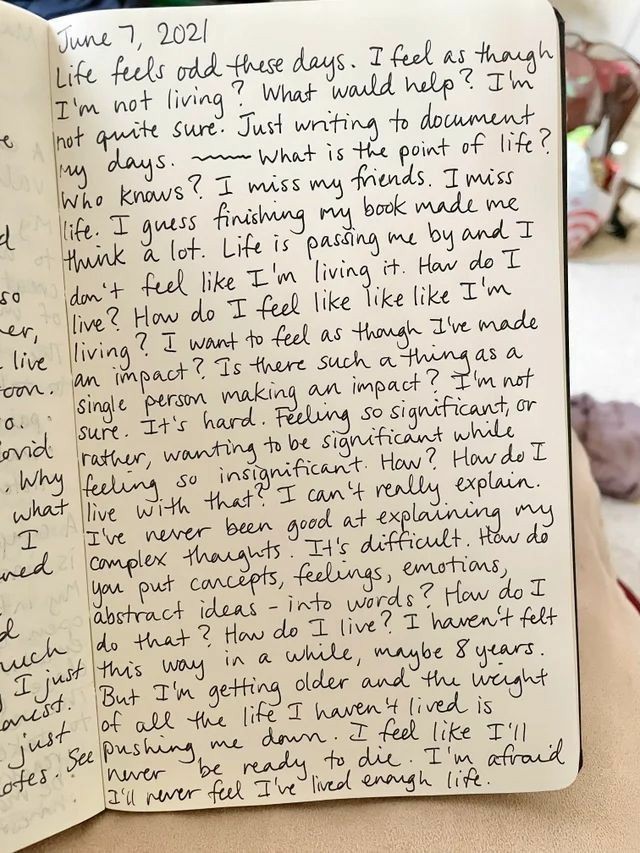 June 7, 2021
Life feels odd these days. I feel as though
I'm not living? What would help? I'm
not quite sure. Just writing to document
my days. ~ What is the point of life?
Who knows? I miss my friends. I miss
life. I guess finishing my book made me
think a lot. Life is passing me by and I
don't feel like I'm living it. How do I
live? How do I feel like like like I'm
living? I want to feel as though I've made
an impact? Is there such a thing as a
single person making an impact? I'm not
sure. It's hard. Feeling so significant, or
rather, wanting to be significant while
feeling so insignificant. How? How do I
live with that? I can't really explain.
I've never been good at explaining my
complex thoughts. It's difficult. How do
you put concepts, feelings, emotions,
abstract ideas - into words? How do I
do that? How do I live? I haven't felt
this way in a while, maybe 8 years.
But I'm getting older and the weight
of all the life I haven't lived is
pushing me down. I feel like I'll
never be ready to die. I'm afraid
I'll never feel I've lived enough life.
so
live
Why
what
I
I just
just
See